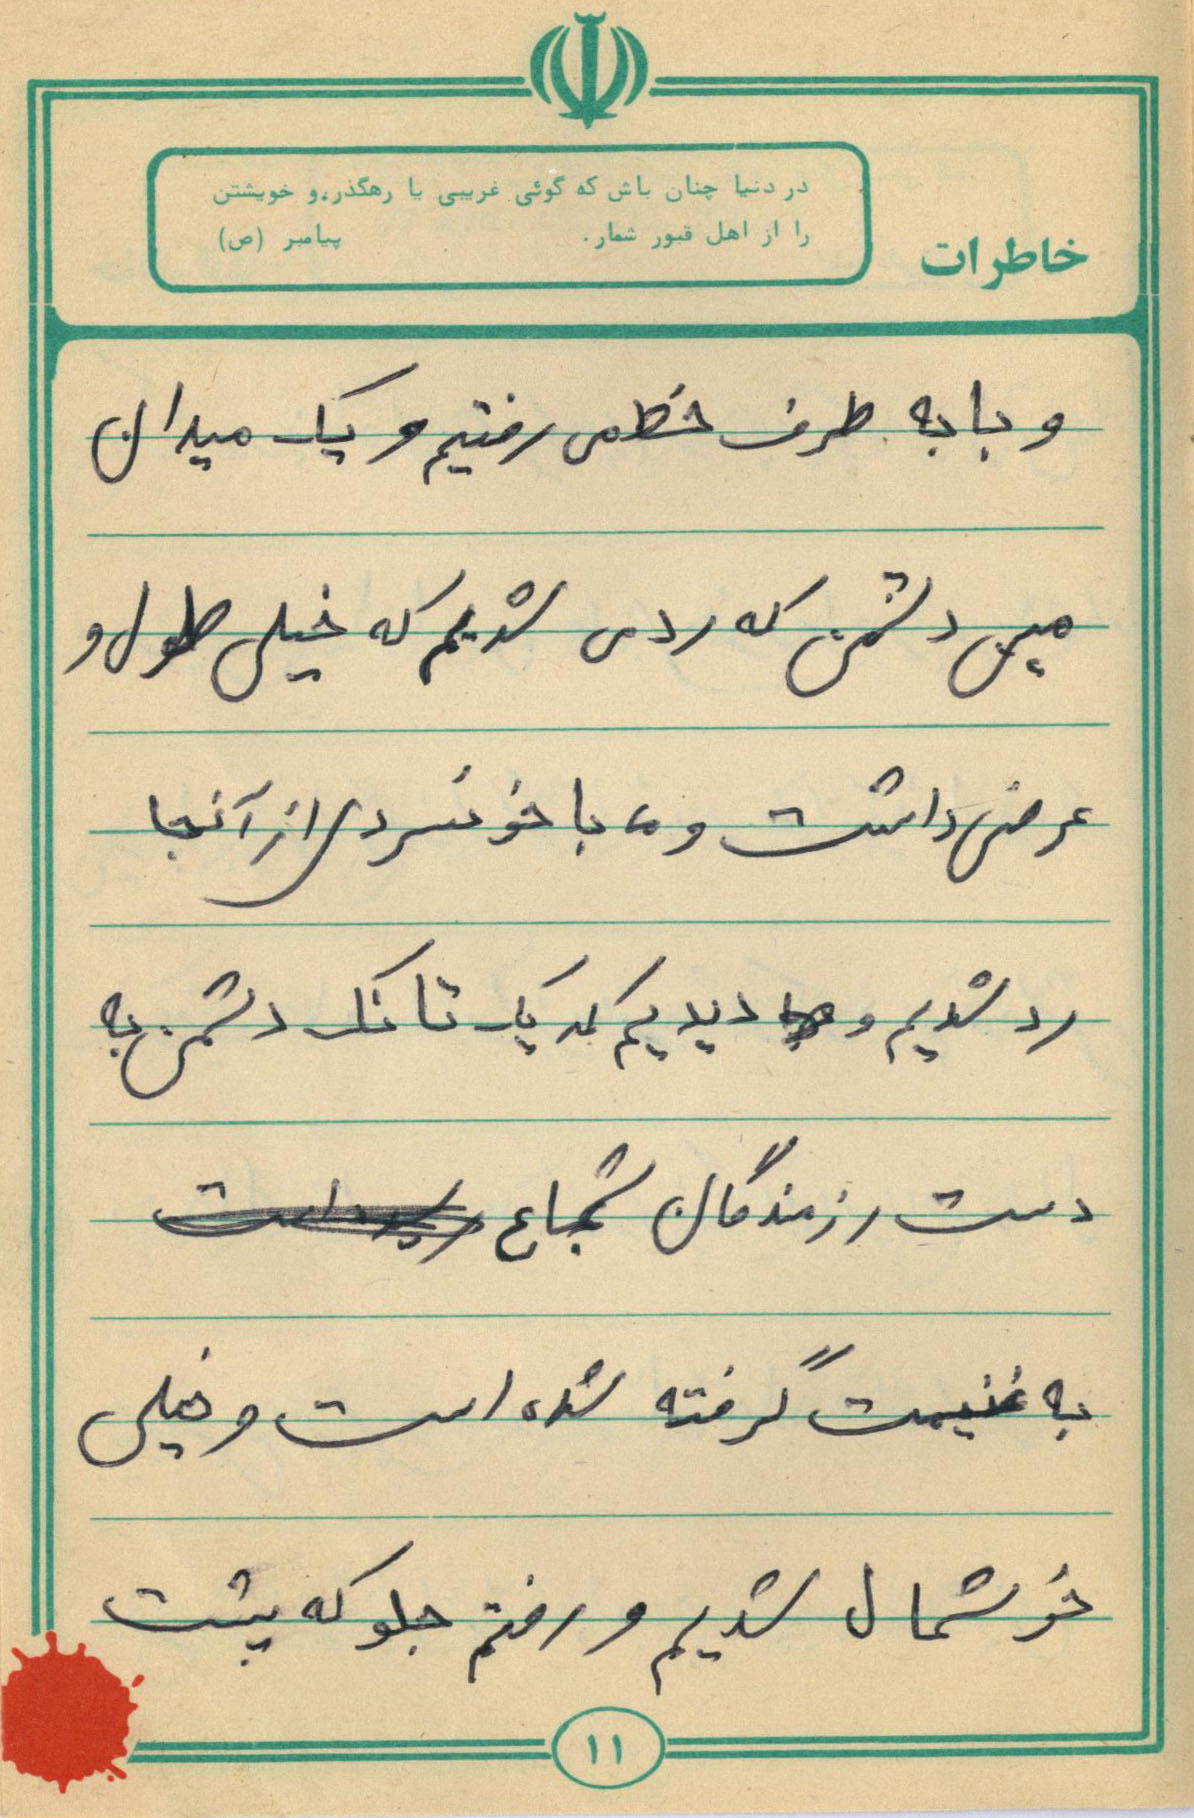 در دنیا چنان باش که گوئی غریبی یا رهگذر، و خویشتن
را از اهل قبور شمار. پیامبر (ص)
خاطرات
و با به طرف خط می رفتیم و یک میدان
مین دشمن که رد می شدیم که خیلی طول و
عرض داشت و ما با خونسردی از آنجا
رد شدیم و دیدیم که یک تانک دشمن به
دست رزمندگان شجاع
به غنیمت گرفته شده است و خیلی
خوشحال شدیم و رفتم جلو که پشت
۱۱